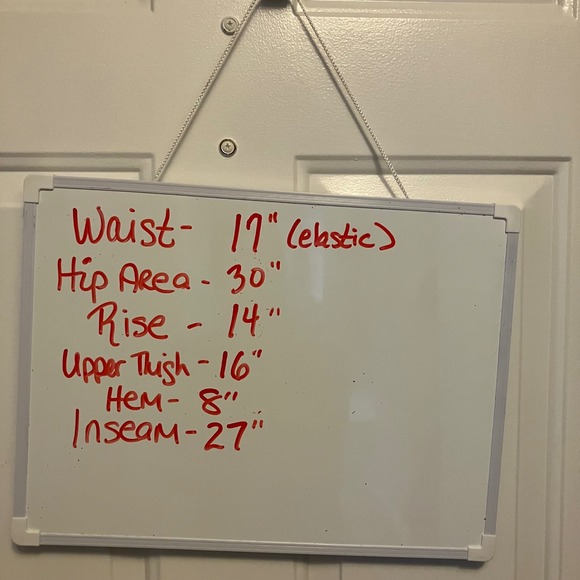 Waist- 17" (elastic)
Hip Area - 30"
Rise - 14"
Upper Thigh - 16"
Hem - 8"
Inseam - 27"